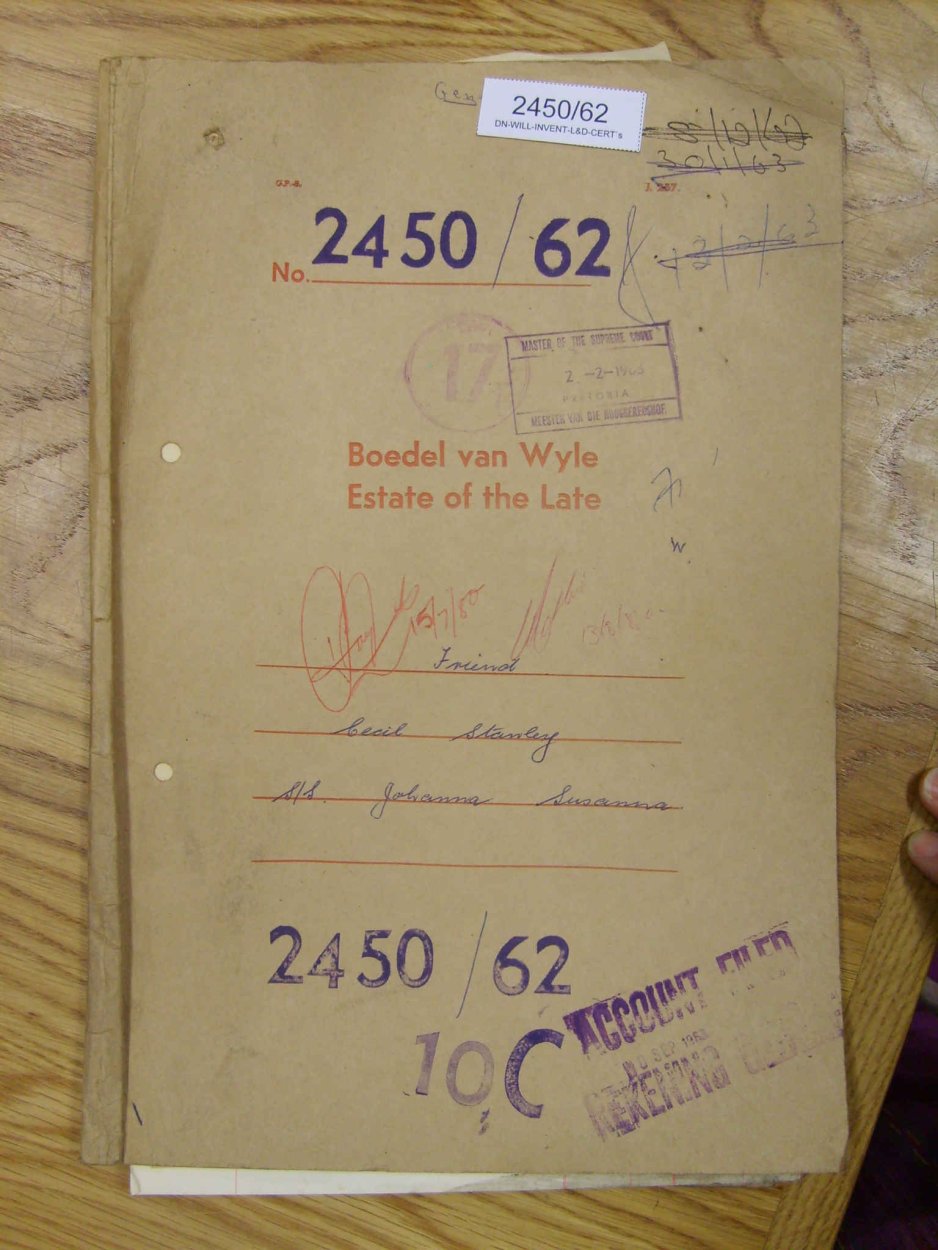 2450/62
DN-WILL-INVENT-L&D-CERT's
8/12/62
30/1/63
G.P.-S.
J. 237.
No. 2450/62
12/2/63
17
MASTER OF THE SUPREME COURT
2 -2-1963
PRETORIA
MEESTER VAN DIE HOOGGEREGSHOF
Boedel van Wyle
Estate of the Late
15/7/80
13/8/80
Friend
Cecil Stanley
S/S. Johanna Susanna.
2450/62
ACCOUNT FILED
SEP
REKENING
10 C